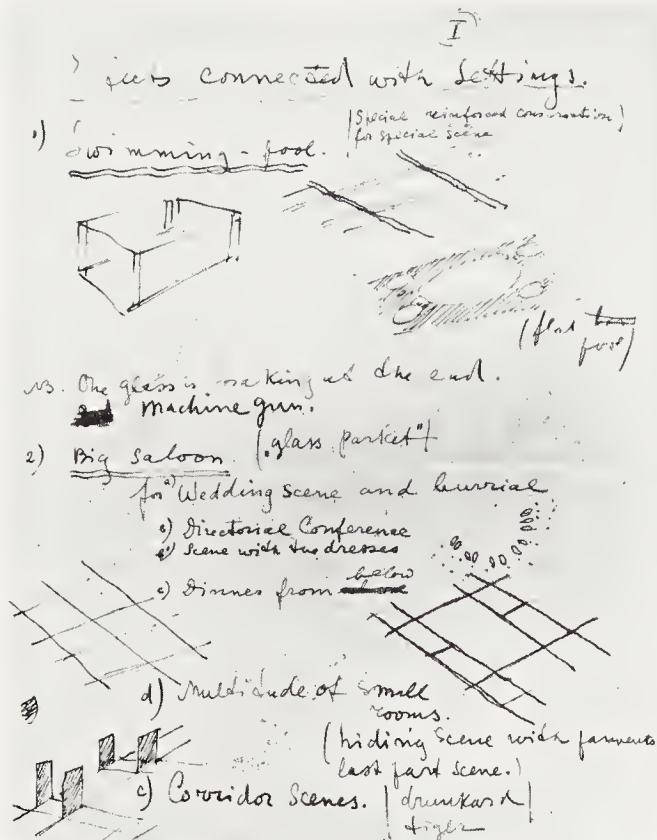 I
connected with Settings.
1) Swimming-pool.
(Special reinforced construction)
for special scene
(flat pool)
NB. One glass is at the end.
Machine gun.
2) Big Saloon. ("glass parket")
for a) Wedding Scene and burrial
b) Directorial Conference
Scene with the dresses
c) Dinner from below
d) Multitude of small
rooms.
(hiding scene with
last part scene.)
Corridor Scenes. (drunkard)
tiger